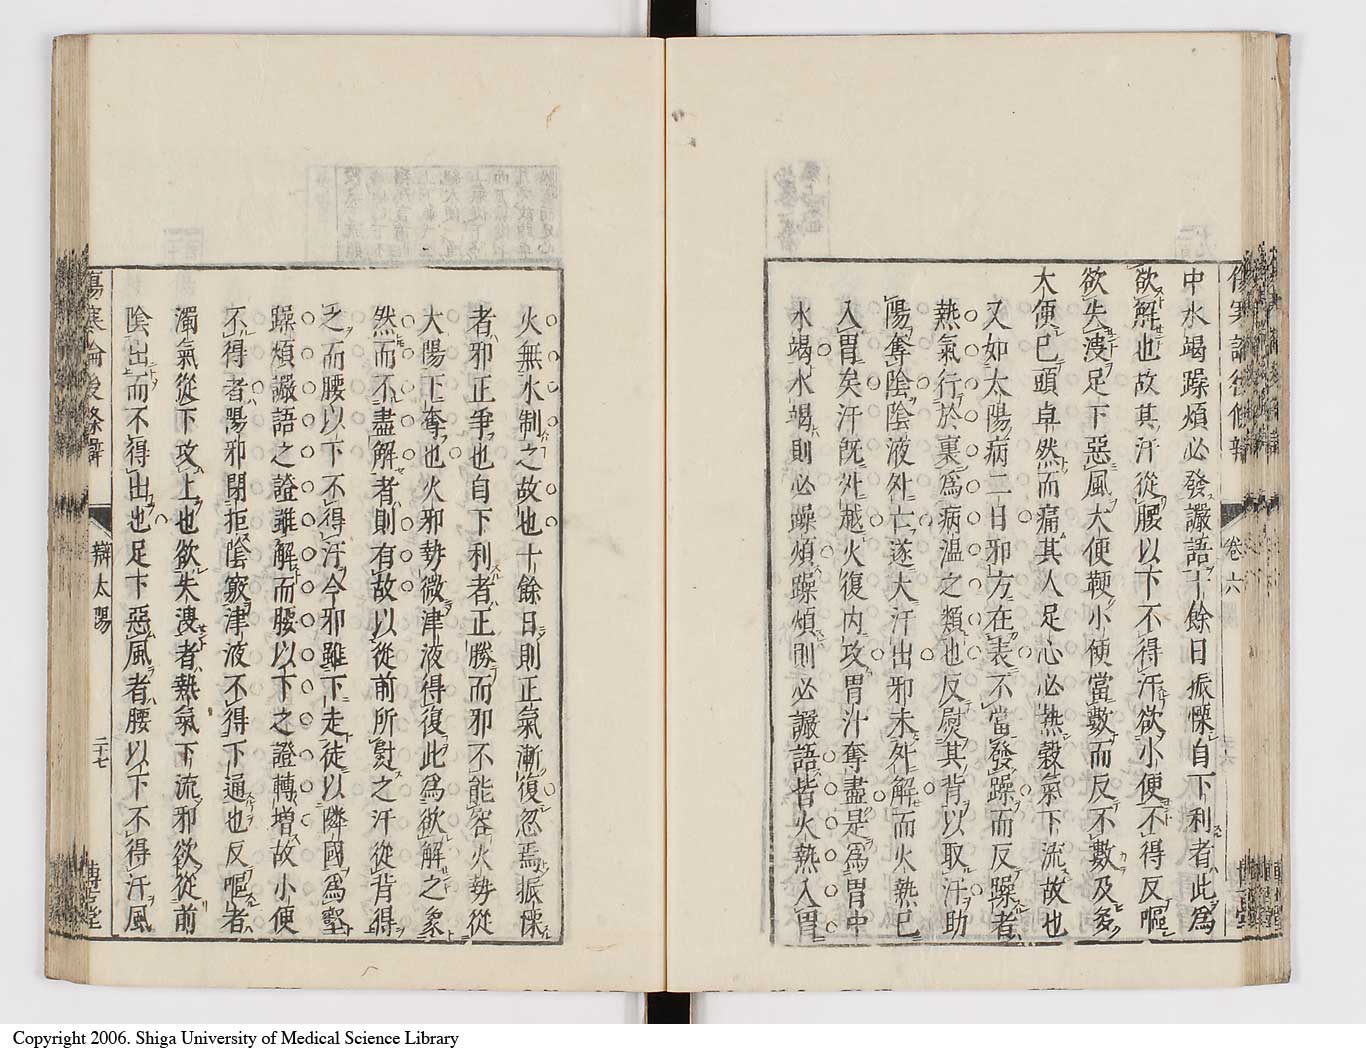 傷寒論後條辨 卷六
中水竭躁煩必發讝語十餘日振慄自下利者此爲
欲解也故其汗從腰以下不得汗欲小便不得反嘔
欲失溲足下惡風大便鞕小便當數而反不數及多
大便已頭卓然而痛其人足心必熱穀氣下流故也
又如太陽病二日邪方在表不當發躁而反躁者
熱氣行於裏爲病溫之類也反熨其背以取汗助
陽奪陰陰液外亡遂大汗出邪未外解而火熱已
入胃矣汗既外越火復內攻胃汁奪盡是爲胃中
水竭水竭則必躁煩躁煩則必讝語皆火熱入胃
火無水制之故也十餘日則正氣漸復忽焉振慄
者邪正爭也自下利者正勝而邪不能容火勢從
大陽下奪也火邪勢微津液得復此爲欲解之象
然而不盡解者則有故以從前所熨之汗從背得
之而腰以下不得汗今邪雖下走徒以隣國爲壑
躁煩讝語之證雖解而腰以下之證轉增故小便
不得者陽邪閉拒陰竅津液不得下通也反嘔者
濁氣從下攻上也欲失溲者熱氣下流邪欲從前
陰出而不得出也足下惡風者腰以下不得汗風
傷寒論後條辨 辯太陽 二十七 博古堂
Copyright 2006. Shiga University of Medical Science Library